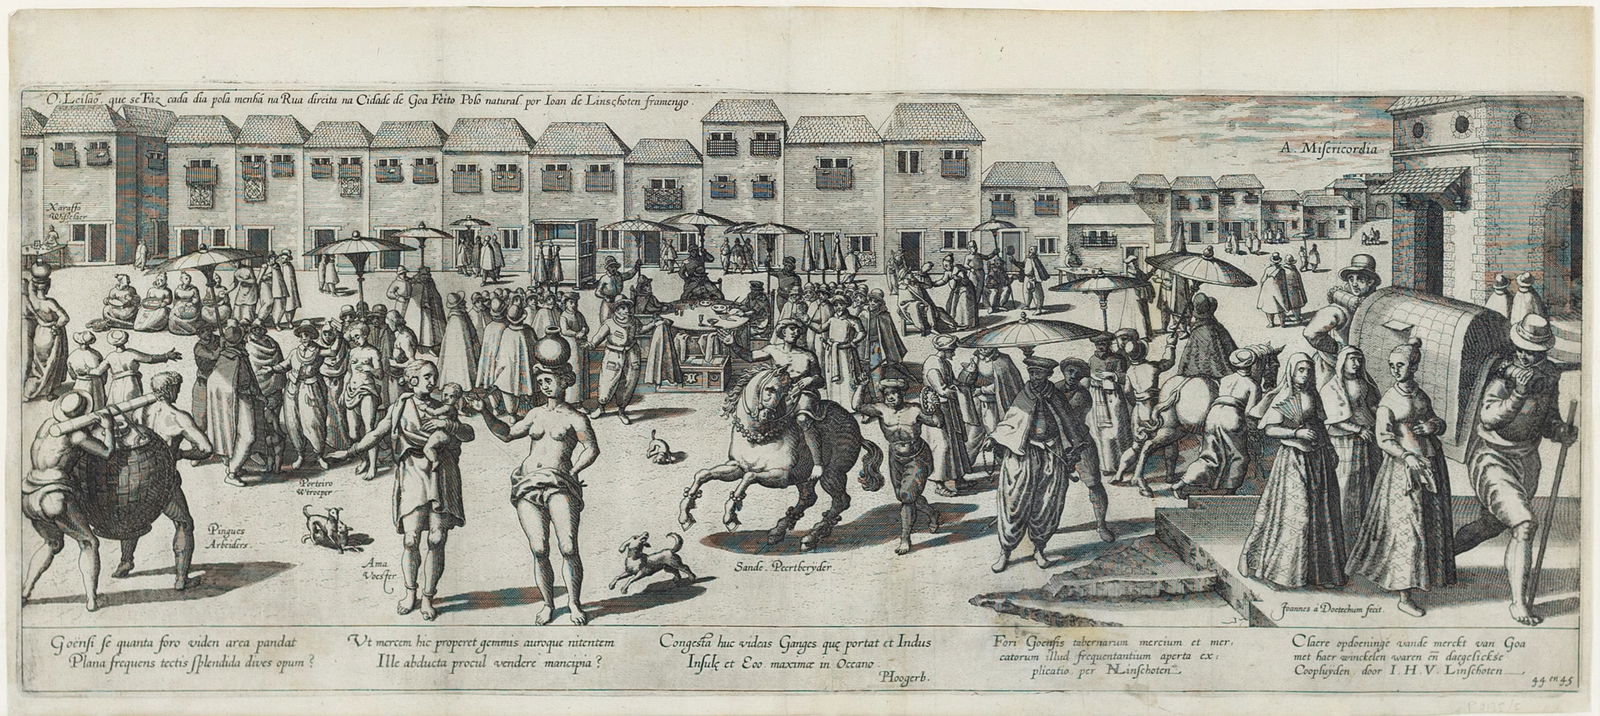 O Leilaõ, que se Faz cada dia pola menhá na Rua direita na Cidade de Goa Feito Polo natural por Ioan de Linschoten framengo.
A. Misericordia
Xaraffo
Wisselier
Porteiro
Wtroeper
Pingues
Arbeiders.
Ama
Voester
Sande. Peertberyder.
Joannes à Doetechum fecit.
Goënsi se quanta foro viden area pandat
Plana frequens tectis splendida dives opum?
Vt mercem hic properet gemmis auroque nitentem
Ille abducta procul vendere mancipia?
Congesta huc videas Ganges quę portat et Indus
Insulę et Eoo maximæ in Oceano.
Hoogerb.
Fori Goensis tabernarum mercium et mer,
catorum illud frequentantium aperta ex:
plicatio per Linschoten
Claere opdoeninge vande merckt van Goa
met haer winckelen waren eñ daegelickse
Coopluÿden door I. H. V. Linschoten
44 en 45